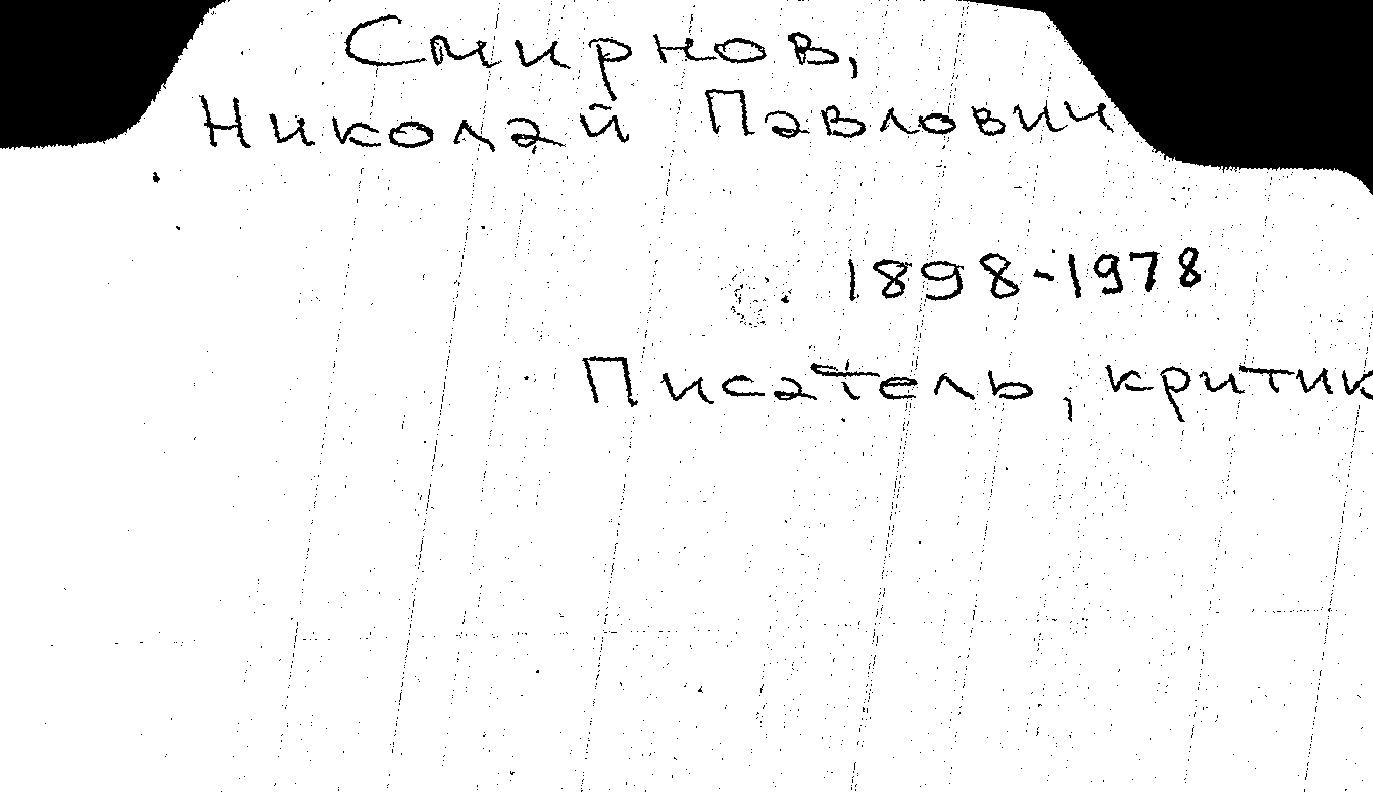 Смирнов,
Николай Павлович
1898-1978
Писатель, критик